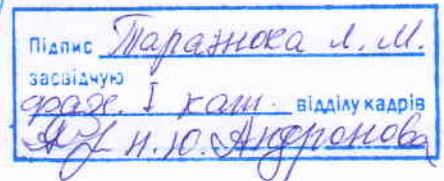 Підпис Таразнюка А. М.
засвідчую
фахе. І кат. відділу кадрів
Н. Ю. Андронова